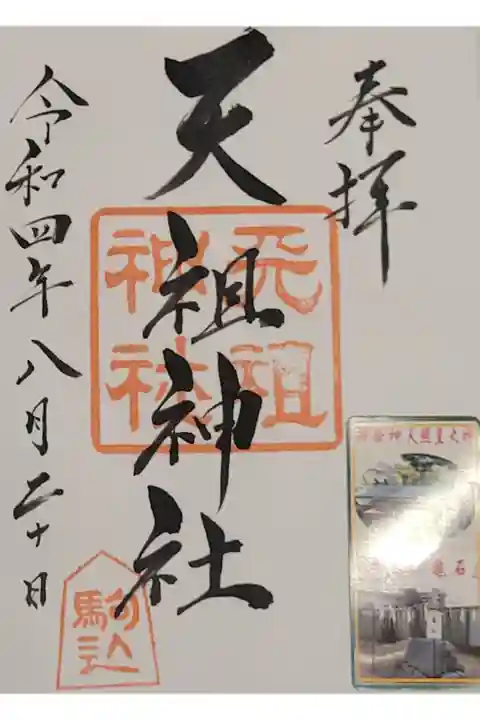 奉拝
天祖神社
天祖
神社
令和四年八月二十日
駒込
亀石